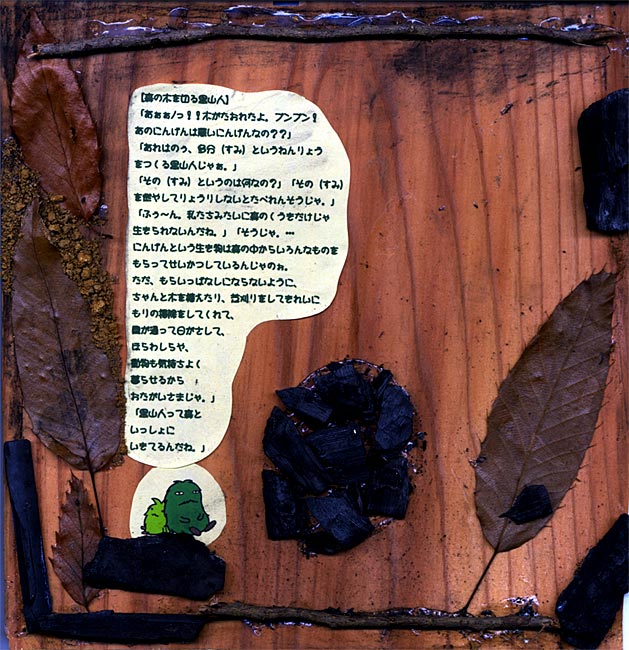 【森の木を切る里山人】
「あぁぁ/っ！！木がたおれたよ。プンプン！
あのにんげんは悪いにんげんなの？？」
「あれはのぅ、多分（すみ）というねんりょう
をつくる里山人じゃぁ。」
「その（すみ）というのは何なの？」「その（すみ）
を燃やしてりょうりしないとたべれんそうじゃ。」
「ふぅ～ん。私たちみたいに森のくうきだけじゃ
生きられないんだね。」「そうじゃ。…
にんげんという生き物は森の中からいろんなものを
もらってせいかつしているんじゃのぉ。
ただ、もらいっぱなしにならないように、
ちゃんと木を植えたり、芝刈りをしてきれいに
もりの掃除をしてくれて、
風が通って日がさして、
ほらわしらや、
動物も気持ちよく
暮らせるから
おたがいさまじゃ。」
「里山人って森と
いっしょに
いきてるんだね。」